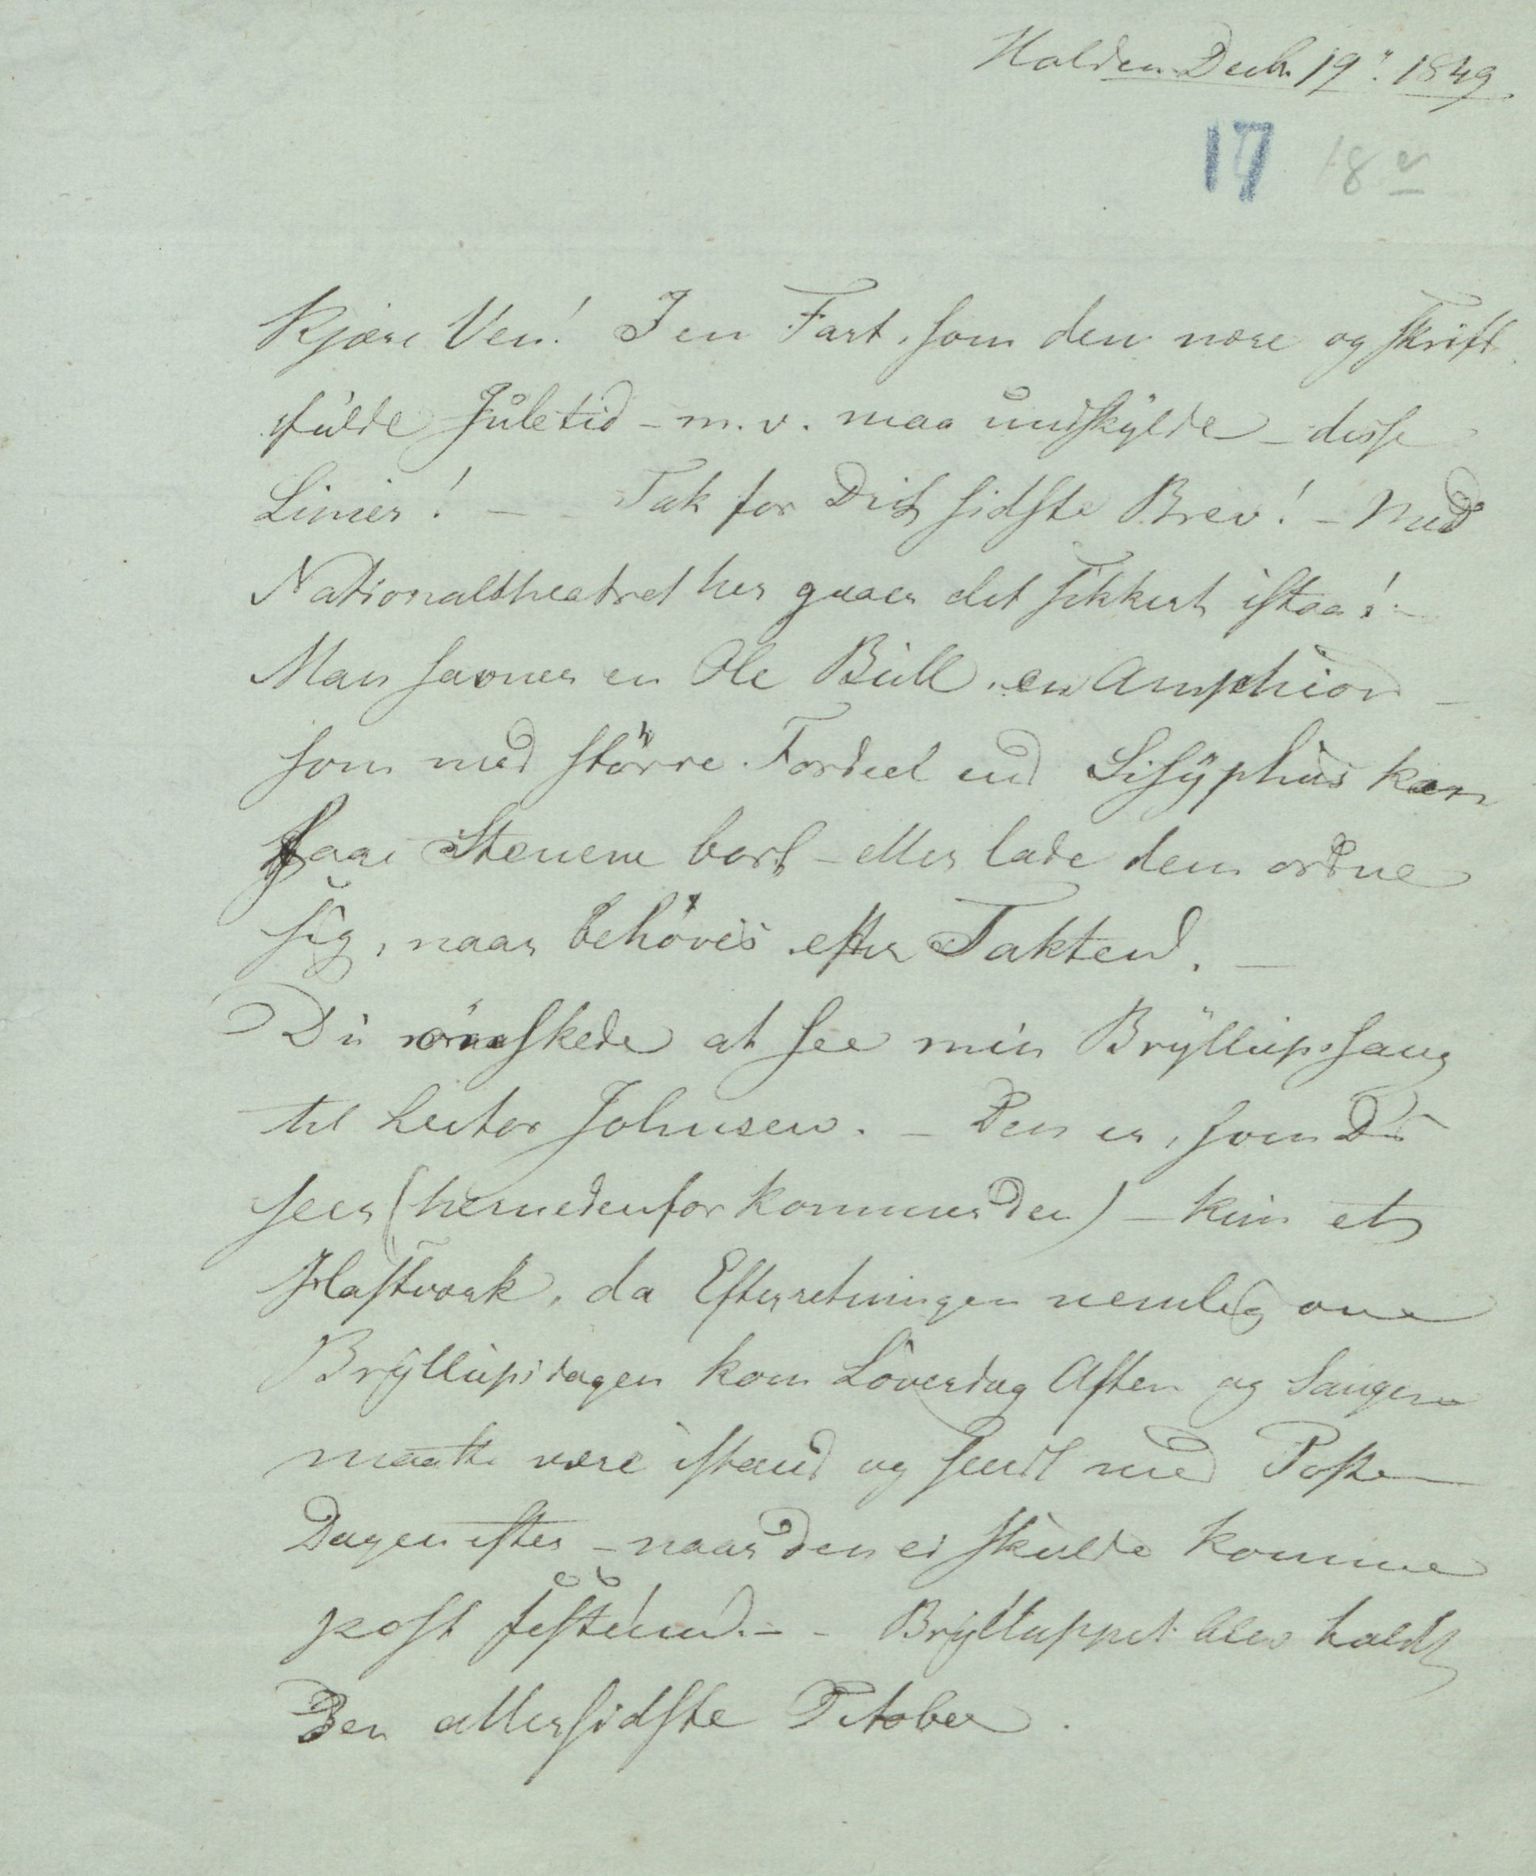 Halden Decbr 19". 1849
17 18
Kjære Ven! I en Fart, som den nære og skrift
fulde Juletid - m. v. maa undskylde - disse
Linier! - Tak for Dit sidste Brev! - Med
Nationaltheatret her gaaer det sikkert istaa! -
Man savner en Ole Bull, en Amphion -
som med större Fordeel end Sisyphus kan
faae Stenene bort - eller lade dem ordne
sig, naar behöves efter Takten. -
Du önskede at see min Bryllupssang
til Lector Johnsen. - Den er, som Du
seer (hernedenfor kommer den) - kun et
Hastværk, da Efterretningen nemlig om
Bryllupsdagen kom Löverdag Aften og Sangen
maatte være istand og sendt med Posten
Dagen efter - naar den ei skulde komme
post festum. - - Brylluppet blev holdt
Den allersidste October.